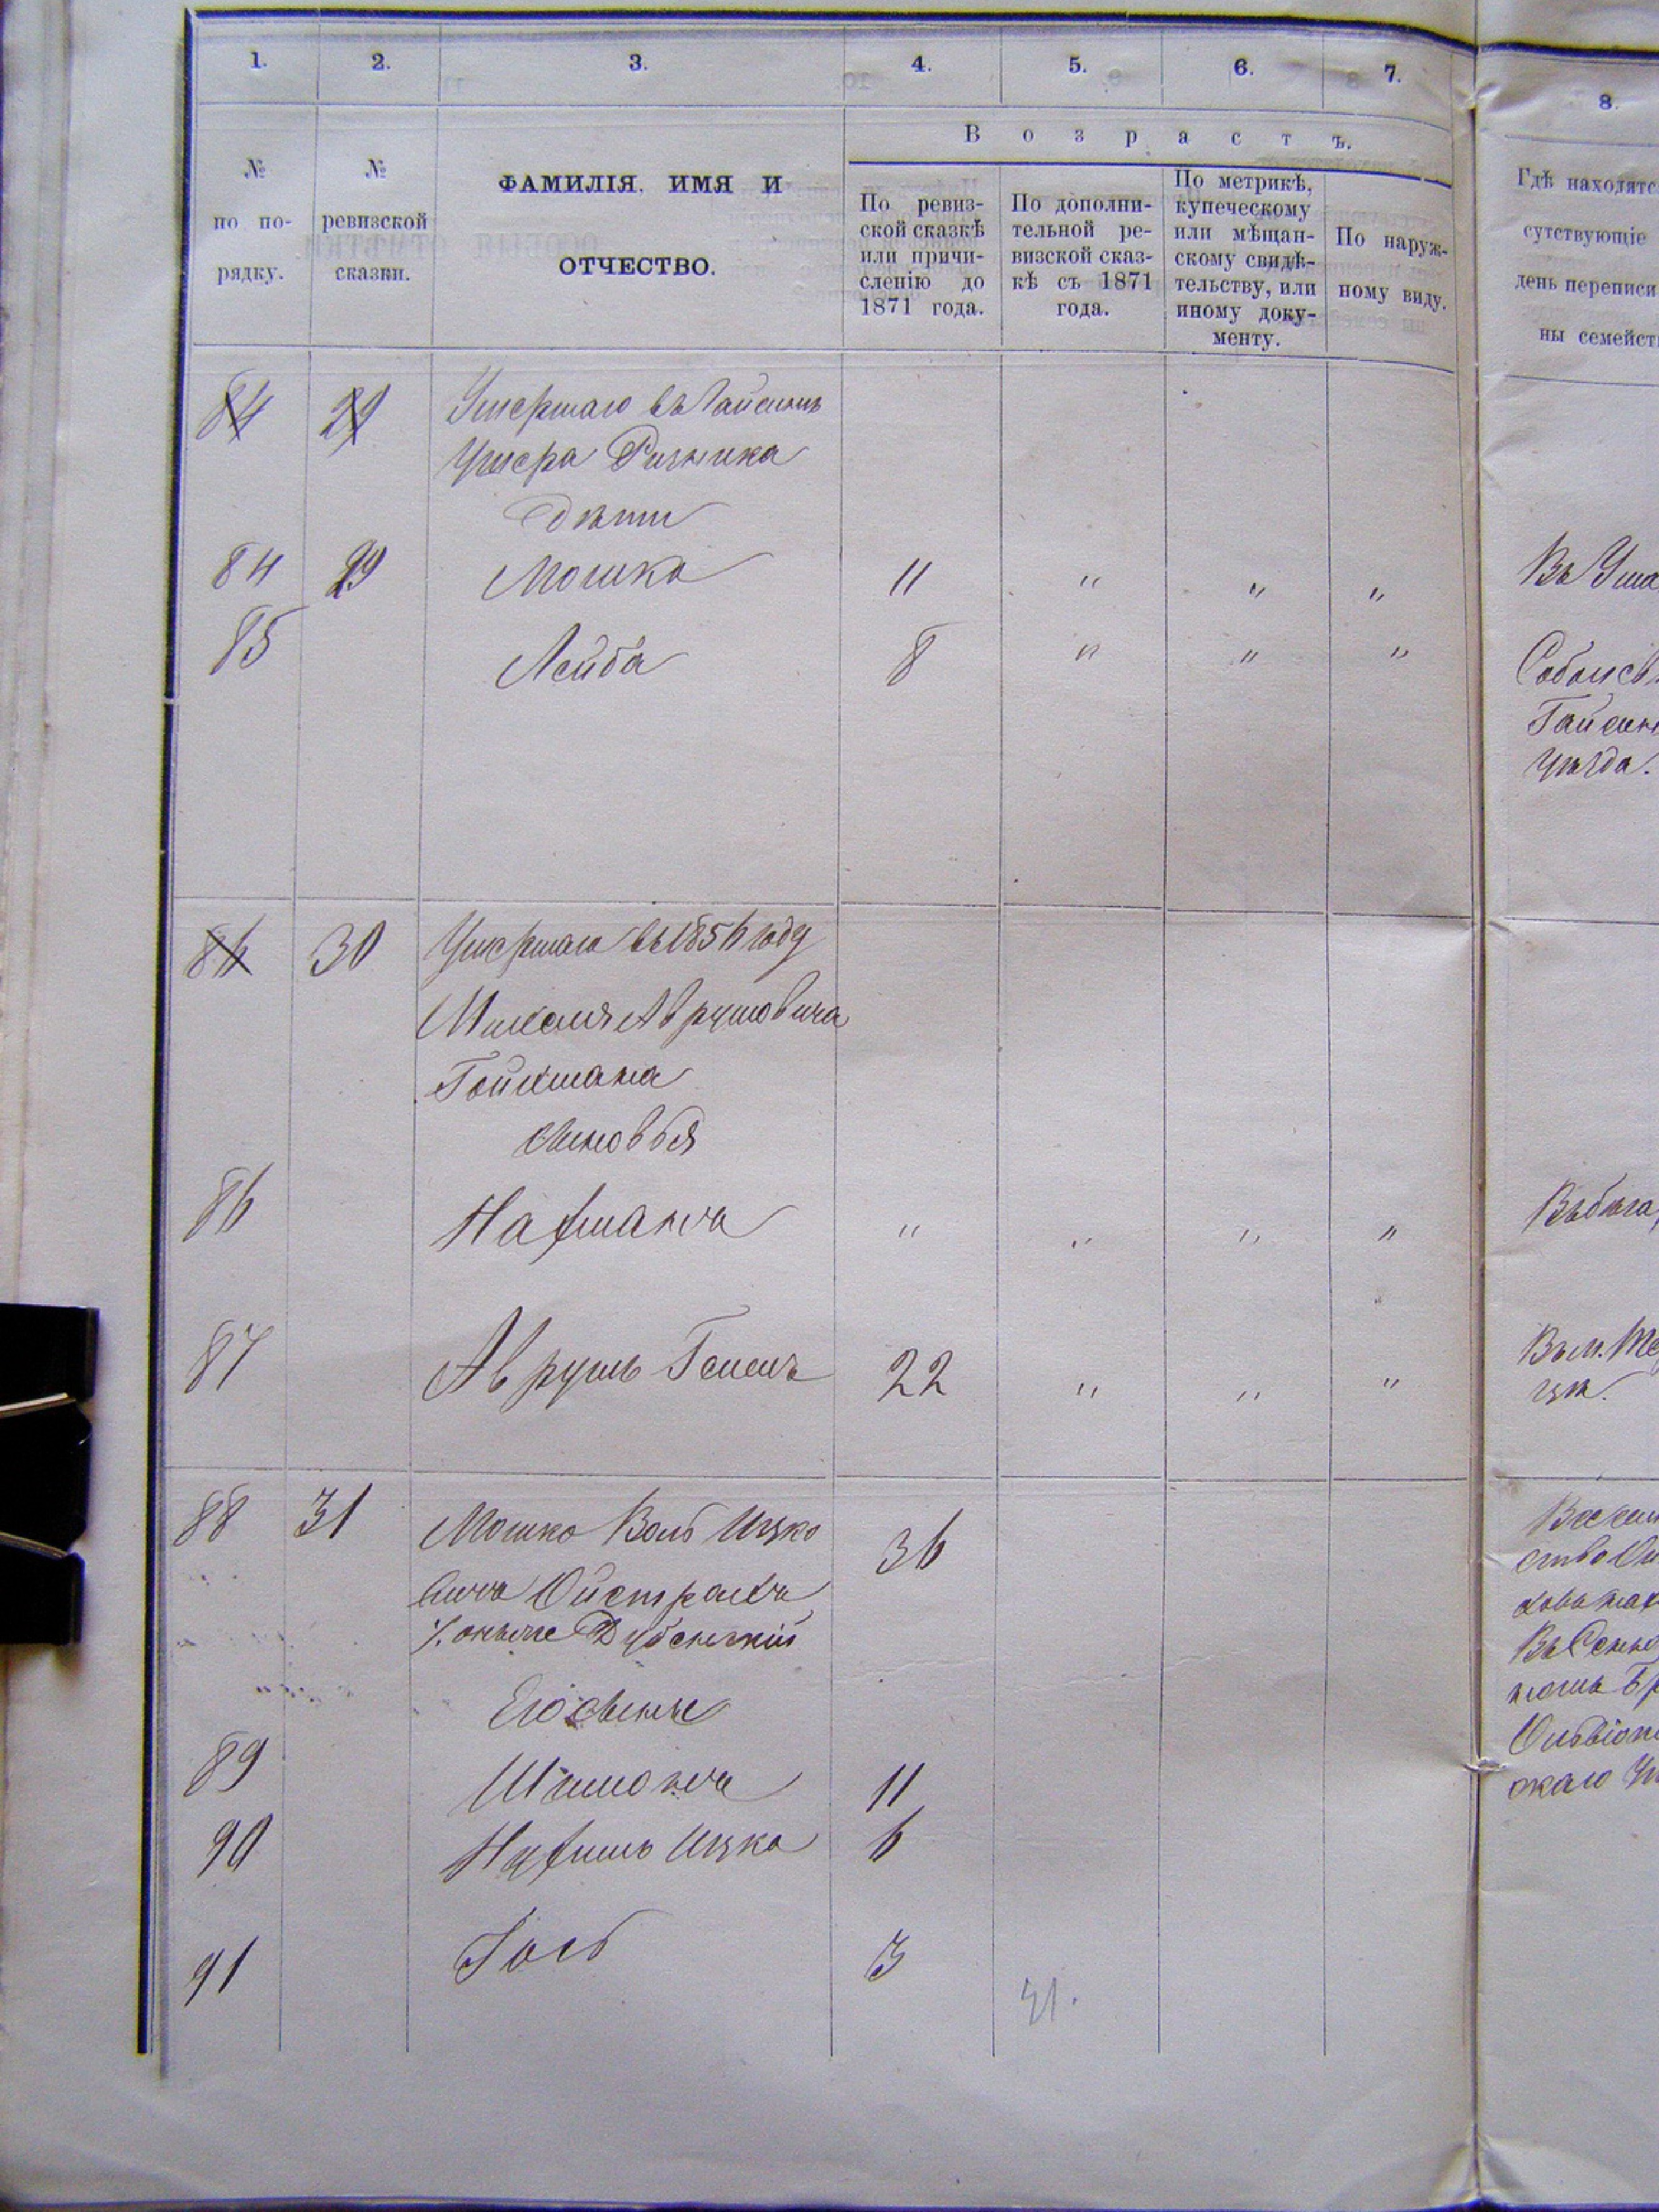 1. 2. 3. 4. 5. 6. 7. 8.
В о з р а с т ъ.
№ по по-рядку.
№ ревизской сказки.
ФАМИЛІЯ, ИМЯ И
ОТЧЕСТВО.
По ревиз-
ской сказкѣ
или причи-
сленію до
1871 года.
По дополни-
тельной ре-
визской сказ-
кѣ съ 1871
года.
По метрикѣ,
купеческому
или мѣщан-
скому свидѣ-
тельству, или
иному доку-
менту.
По наруж-
ному виду.
Гдѣ находятс
сутствующіе
день переписи
ны семейст
84 29 Умершаго въ Гайсинѣ
Умера
дѣти
84 29 Мошко 11 " " " Въ Ума
85 Лейба 8 " " "
Гайсин
уѣзда.
86 30 Умершаго въ 1856 году
Михеля Аврумовича
Гойхмана
сыновья
86 Нахманъ " " " "
87 Аврумъ 22 " " " Въ м. Те
88 31 Мошко Вольф Ицко 36
вичъ Ойстрахъ
онъ же Дубенскій
Его сынъ
89 Шимонъ 11
90 Нухимъ Ицко 6
91 Іось 3
31.